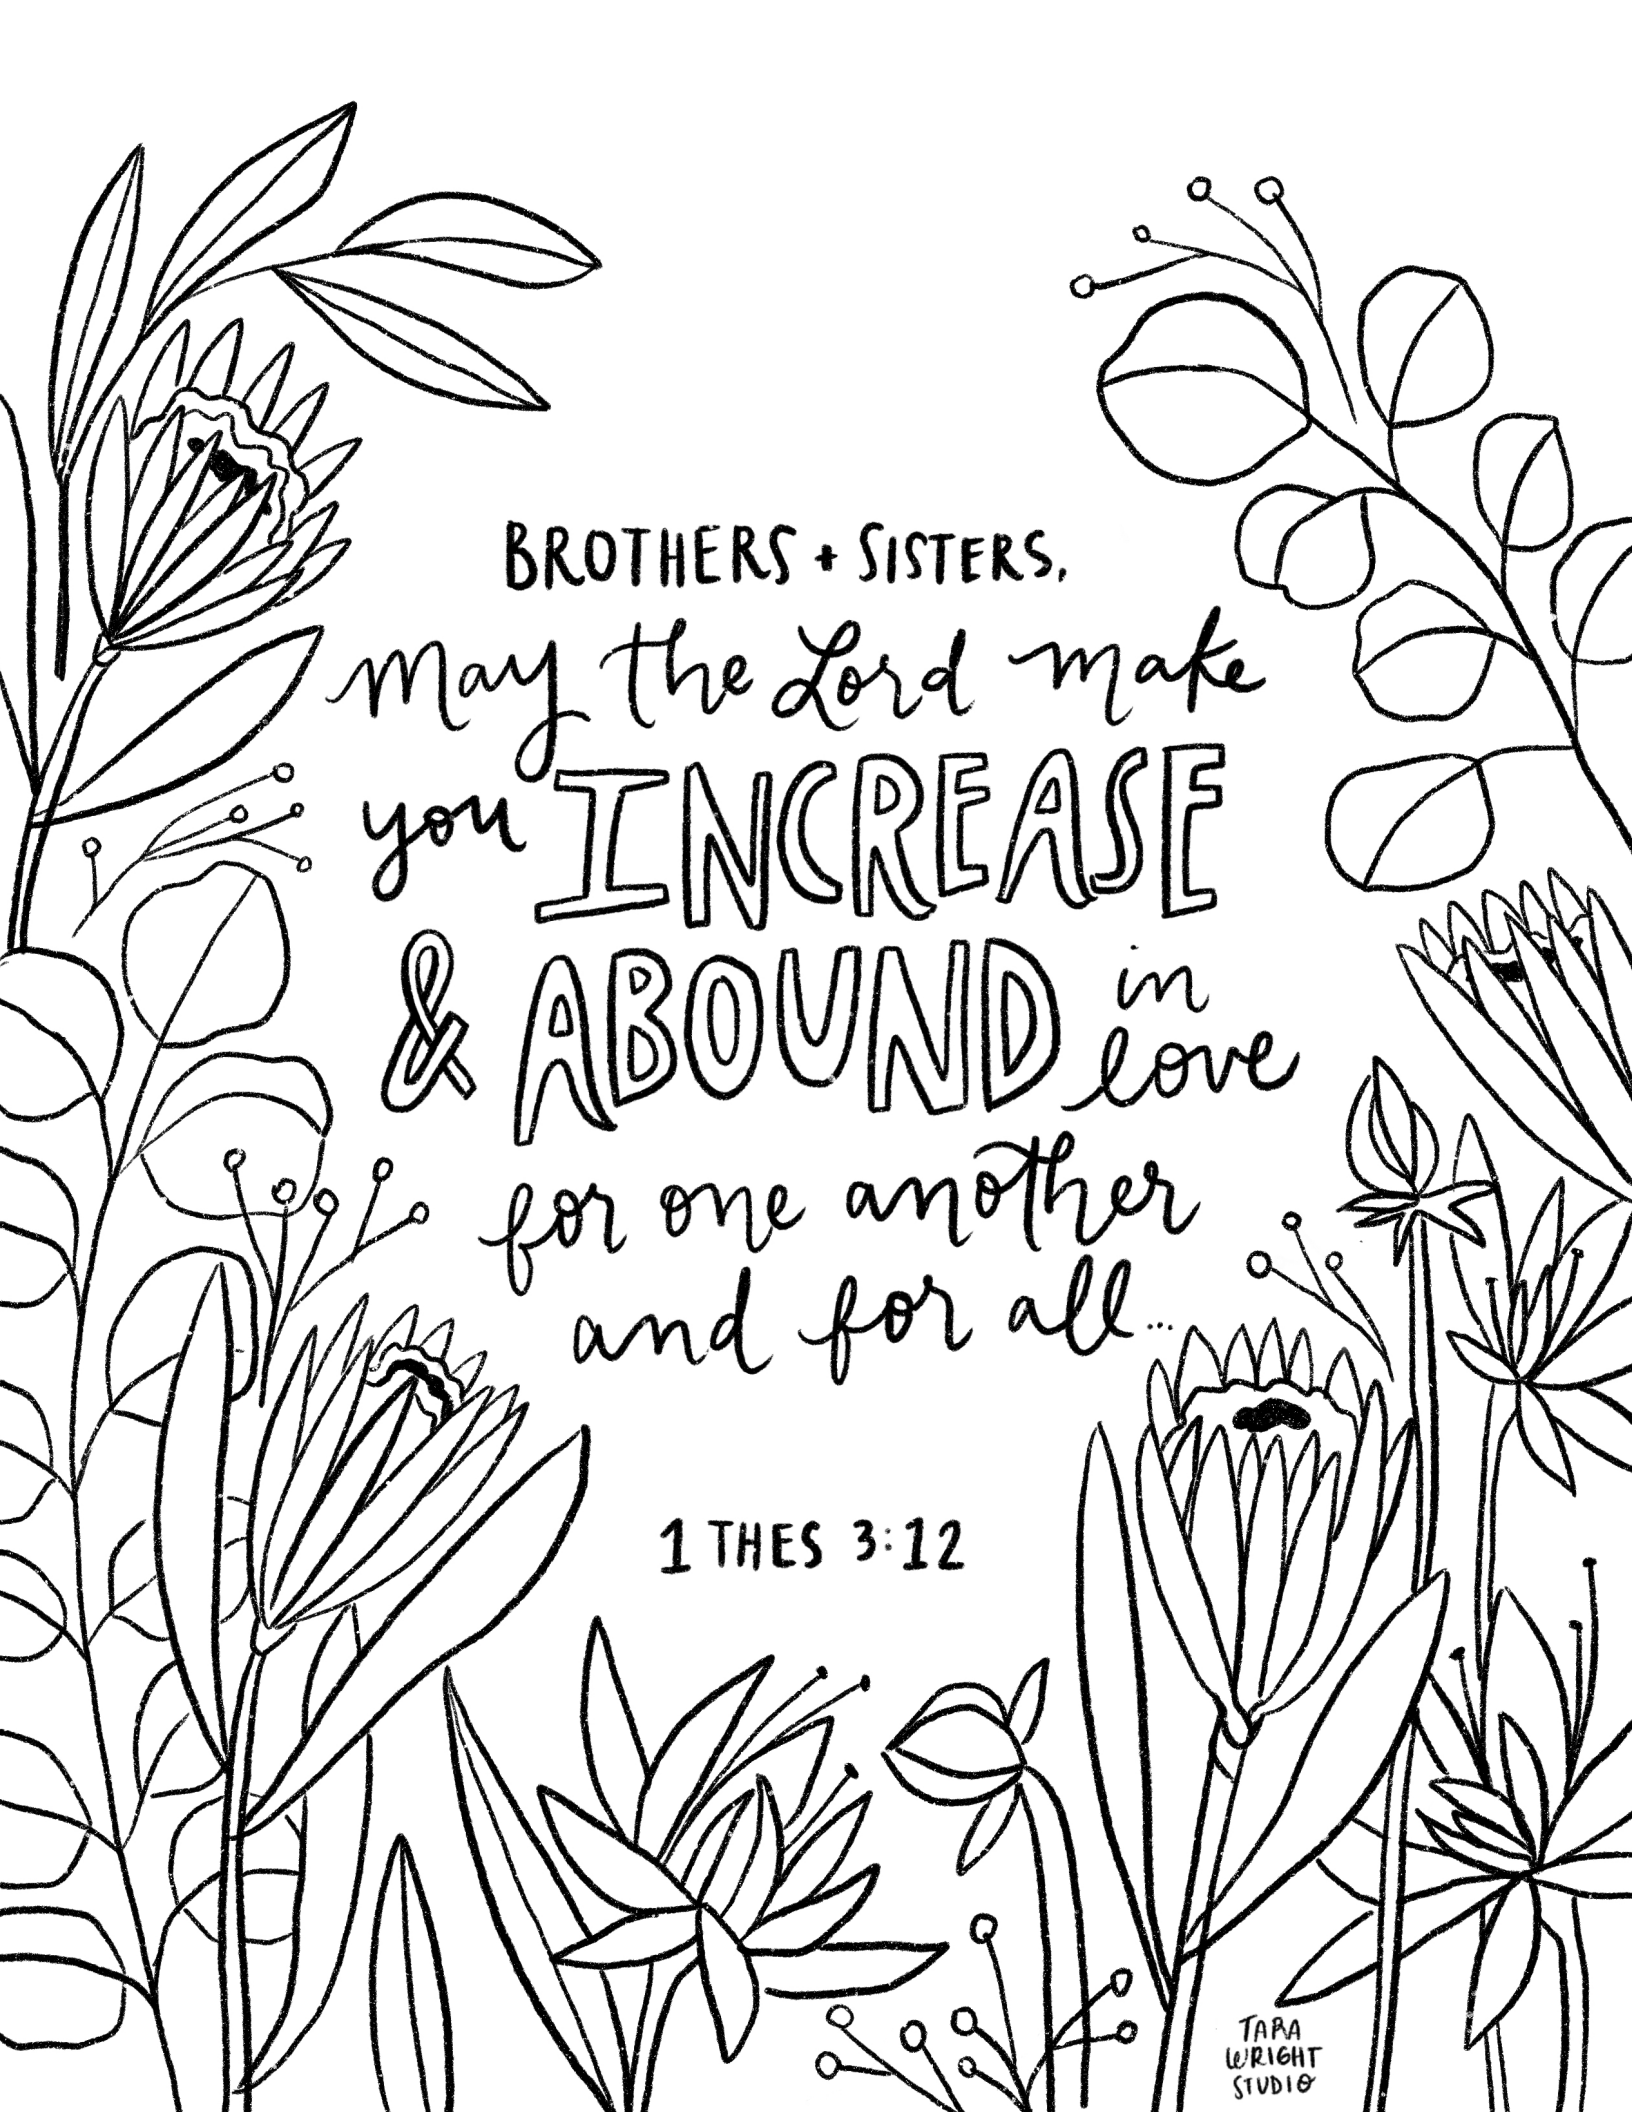 BROTHERS + SISTERS,
may the Lord make
you INCREASE
& ABOUND in
love
for one another
and for all...
1 THES 3:12
TARA
WRIGHT
STUDIO